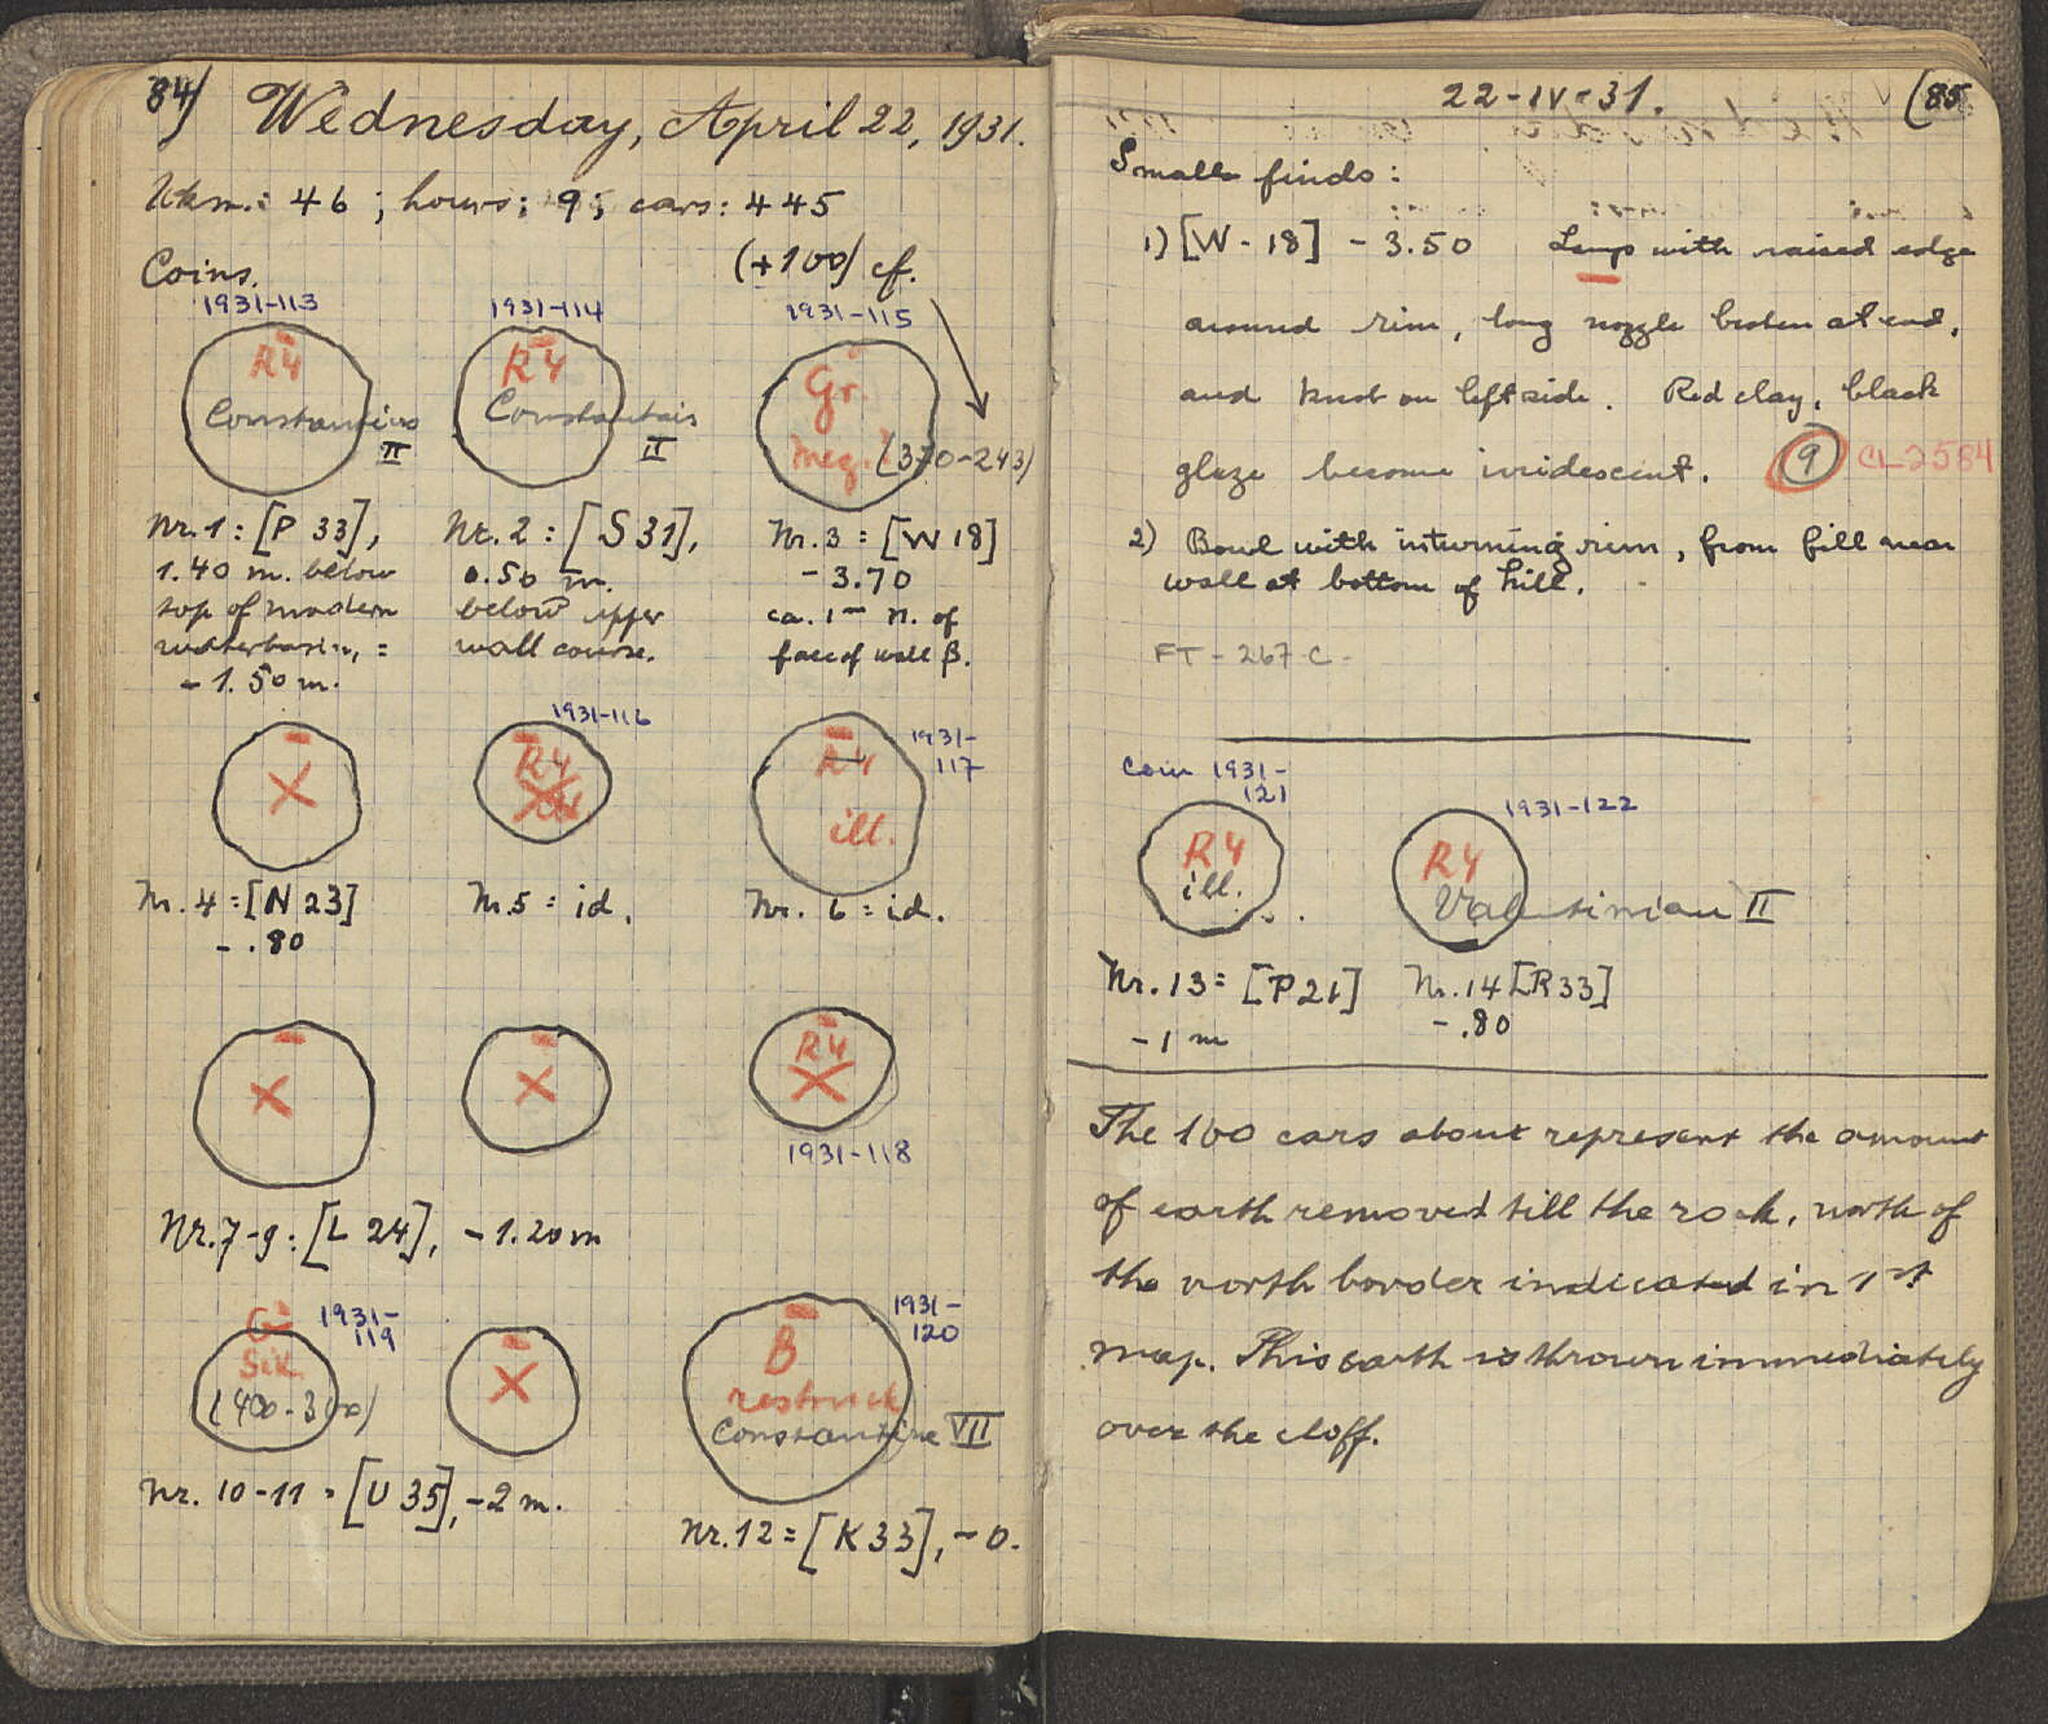 84)
Wednesday, April 22, 1931.
Wkm.: 46 ; hours: 9 ; cars: 445
(+100) cf.
Coins.
1931-113
1931-114
1931-115
R4
Constantius
II
R4
Constantius
II
Gr.
Meg.?
(370-243)
Nr. 1 : [P 33],
1.40 m. below
top of modern
waterbasin, =
- 1.50 m.
Nr. 2 : [S 31],
0.50 m.
below upper
wall course.
Nr. 3 = [W 18]
- 3.70
ca. 1 m n. of
face of wall β.
X
1931-116
R4
1931-
117
R4
ill.
Nr. 4 = [N 23]
- .80
Nr. 5 = id.
Nr. 6 = id.
X
X
R4
X
1931-118
Nr. 7-9 : [L 24], - 1.20 m
1931-
119
Sik.
(400-300)
X
1931-
120
B
restruck
Constantine VII
Nr. 10-11 = [U 35], - 2 m.
Nr. 12 = [K 33], - 0.
22-IV-31.
(85
Smaller finds :
1) [W - 18] - 3.50 Lamp with raised edge
around rim, long nozzle broken at end,
and knob on left side. Red clay, black
glaze become iridescent. 9 CL 2584
2) Bowl with inturning rim, from fill near
wall at bottom of hill.
FT - 267 C -
Coin 1931-
121
1931-122
R4
ill.
R4
Valentinian II
Nr. 13 = [P 21]
- 1 m
Nr. 14 [R 33]
- .80
The 100 cars about represent the amount
of earth removed till the rock, north of
the north border indicated in 1st
map. This earth is thrown immediately
over the cloff.